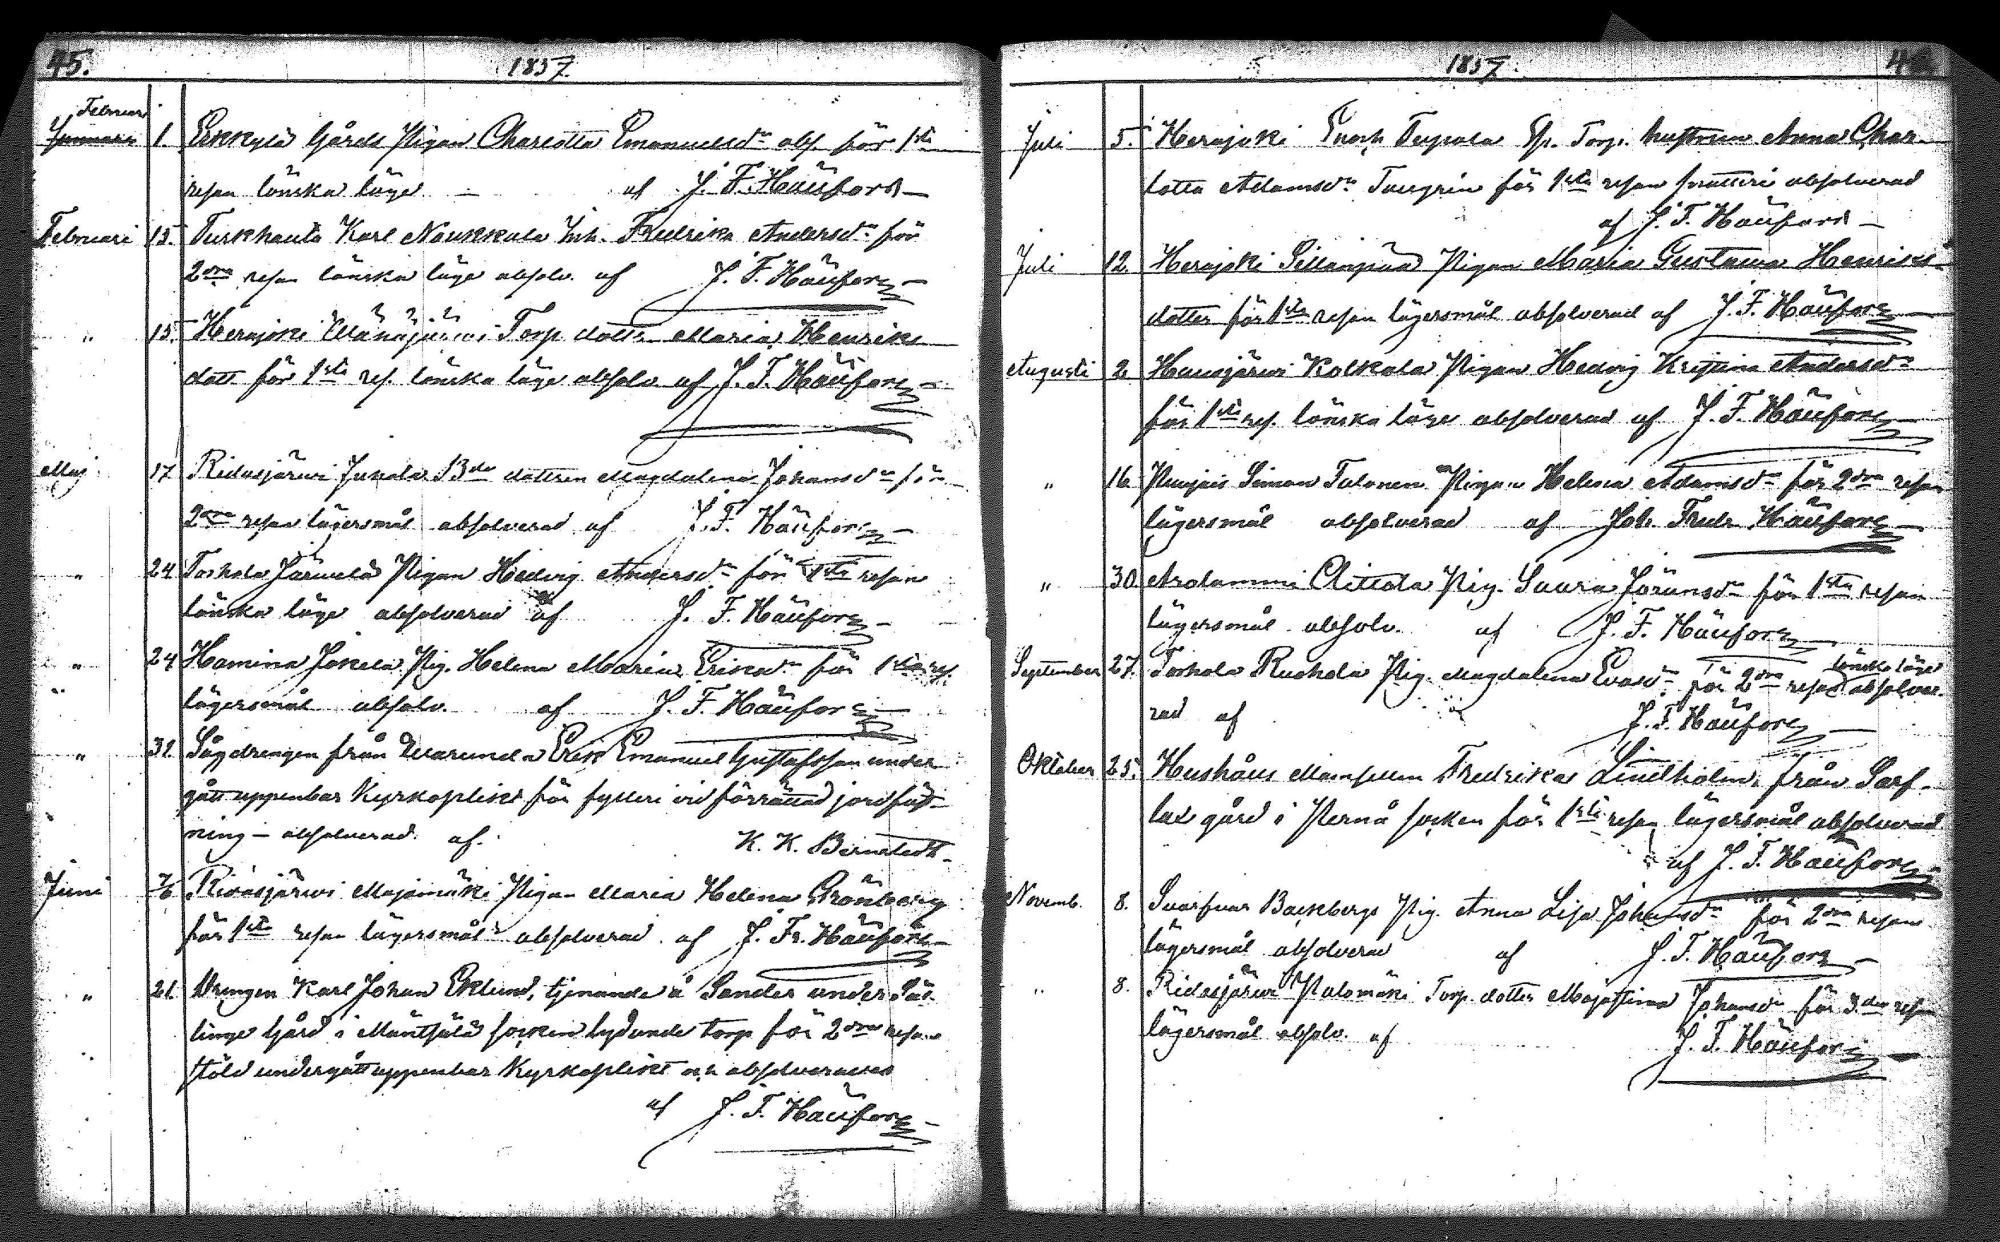 45.
1857.
Februari
Januari 1. Erkkylä Gårds Pigan Charlotta Emanuelsdr abs. för 1sta
resan lönska läge — af J. F. Häüfors
Februari 15. Turkhauta Karl Naukkala Inh. Fredrika Andersdr för
2dra resan lönska läge absolv. af J. F. Häüfors
" 15. Herajoki Torp. dottr Maria Henriks
dott för 1sta res. lönska läge absolv. af J. F. Häüfors
Maj 17 Ridasjärwi Jussila Bde dottren Magdalena Johansdr för
2dra resan lägersmål absolverad af J. F. Häüfors
" 24 Torhola Järwelä Pigan Hedvig Andersdr för 1sta resan
lönska läge absolverad af J. F. Häüfors
" 24 Hamina Jokela Pig. Helena Maria Eriksdr för 1sta res.
lägersmål absolv. af J. F. Häüfors
" 31. Sågdrengen från Erik Emanuel Gustafsson under
gått uppenbar Kyrkoplikt för fylleri vid förrättad jordfäst-
ning — absolverad af. K. K. Bernstedt.
Juni 7/6 Ridasjärwi Majamäki Pigan Maria Helena Grönberg
för 1sta resan lägersmål absolverad af J. Fr. Häüfors
" 21. Drengen Karl Johan Eklund, tjenande å Sander under Säl
linge Gård i Mäntsälä socken lydande torp för 2dra resan
stöld undergått uppenbar Kyrkoplikt och absolverad
af J. F. Häüfors
1857.
46
Juli 5. Herajoki Enoch Tupala Torp. hustrun Anna Char-
lotta Adamsdr för 1sta resan absolverad
af J. F. Häüfors
Juli 12. Herajoki Sillanpää Pigan Maria Gustawa Henriks
dotter för 1sta resan lägersmål absolverad af J. F. Häüfors
Augusti 2 Hausjärwi Kolkala Pigan Hedvig Kristina Andersdr
för 1sta res. lönska läge absolverad af J. F. Häüfors
" 16 Simon Talonen Pigan Helena Adamsdr för 2dra resan
lägersmål absolverad af Joh. Fredr. Häüfors
" 30. Arolammi Alittola Pig. Laura Göransdr för 1sta resan
lägersmål absolv. af J. F. Häüfors
September 27. Torhola Ruohola Pig. Magdalena Evasdr för 2dra resan lönska läge absolve
rad af J. F. Häüfors
Oktober 25. Hushåls Mamsellen Fredrika Lindholm från Sarf-
lax gård i Pernå socken för 1sta resan lägersmål absolverad
af J. F. Häüfors
Novemb. 8. Backbergs Pig. Anna Lisa Johansdr för 2dra resan
lägersmål absolverad af J. F. Häüfors
" 8. Ridasjärwi Palomäki Torp. dotter Majastina Johansdr för 3dje resan
lägersmål absolv. af J. F. Häüfors